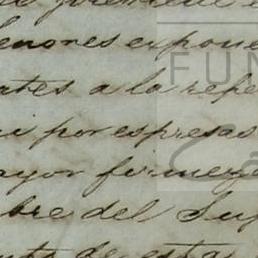 enores expone
ates a la repe
i por espresas
ayor firmeza
bre del Sup
de esta
FUN